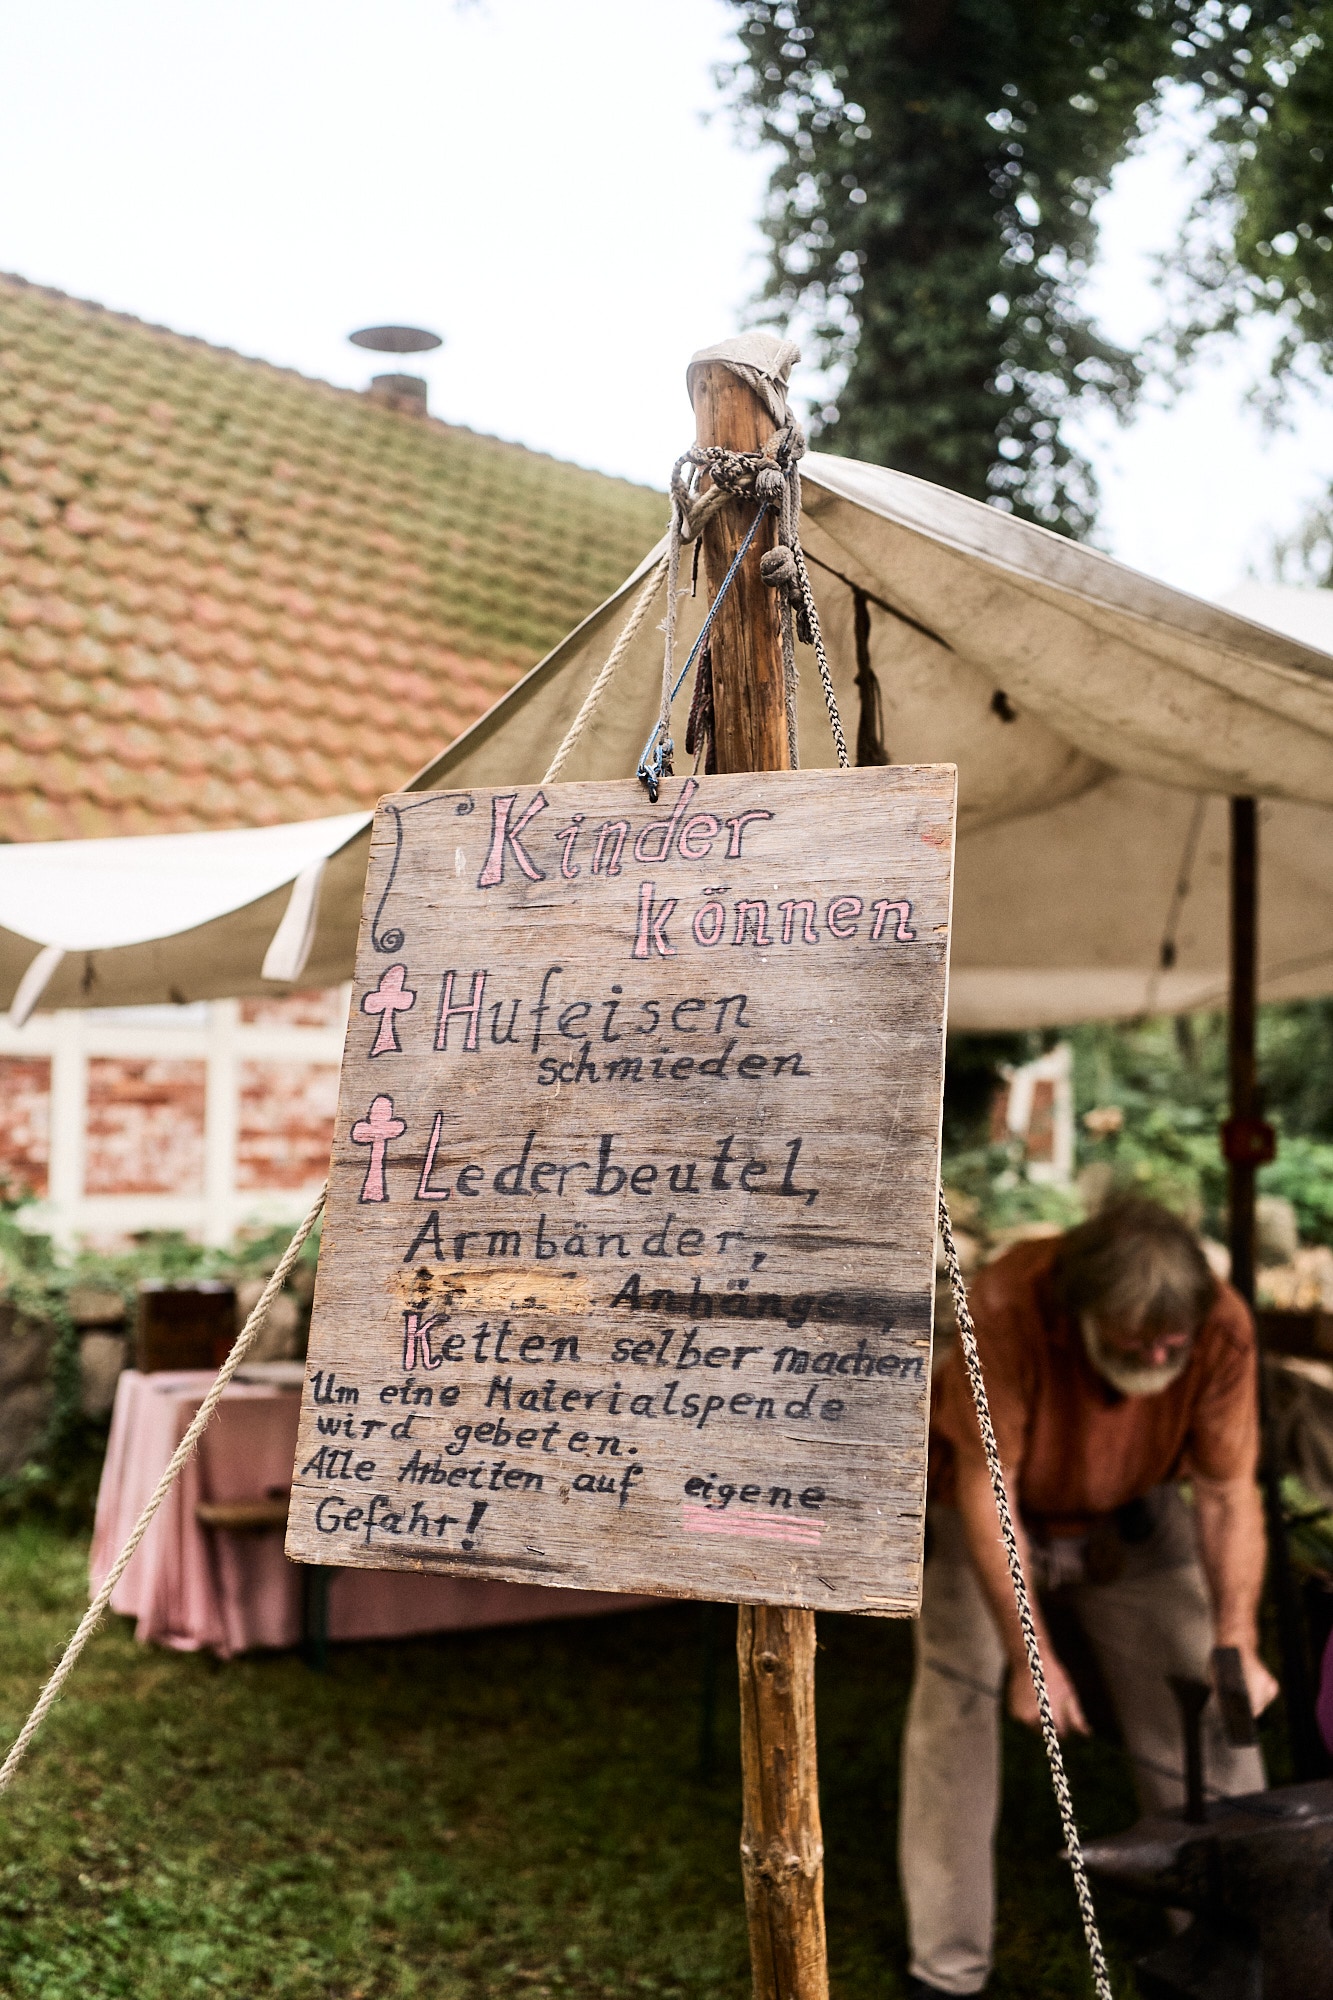 Kinder
können
Hufeisen
schmieden
Lederbeutel,
Armbänder,
Anhänger,
Ketten selber machen
Um eine Materialspende
wird gebeten.
Alle Arbeiten auf eigene
Gefahr!